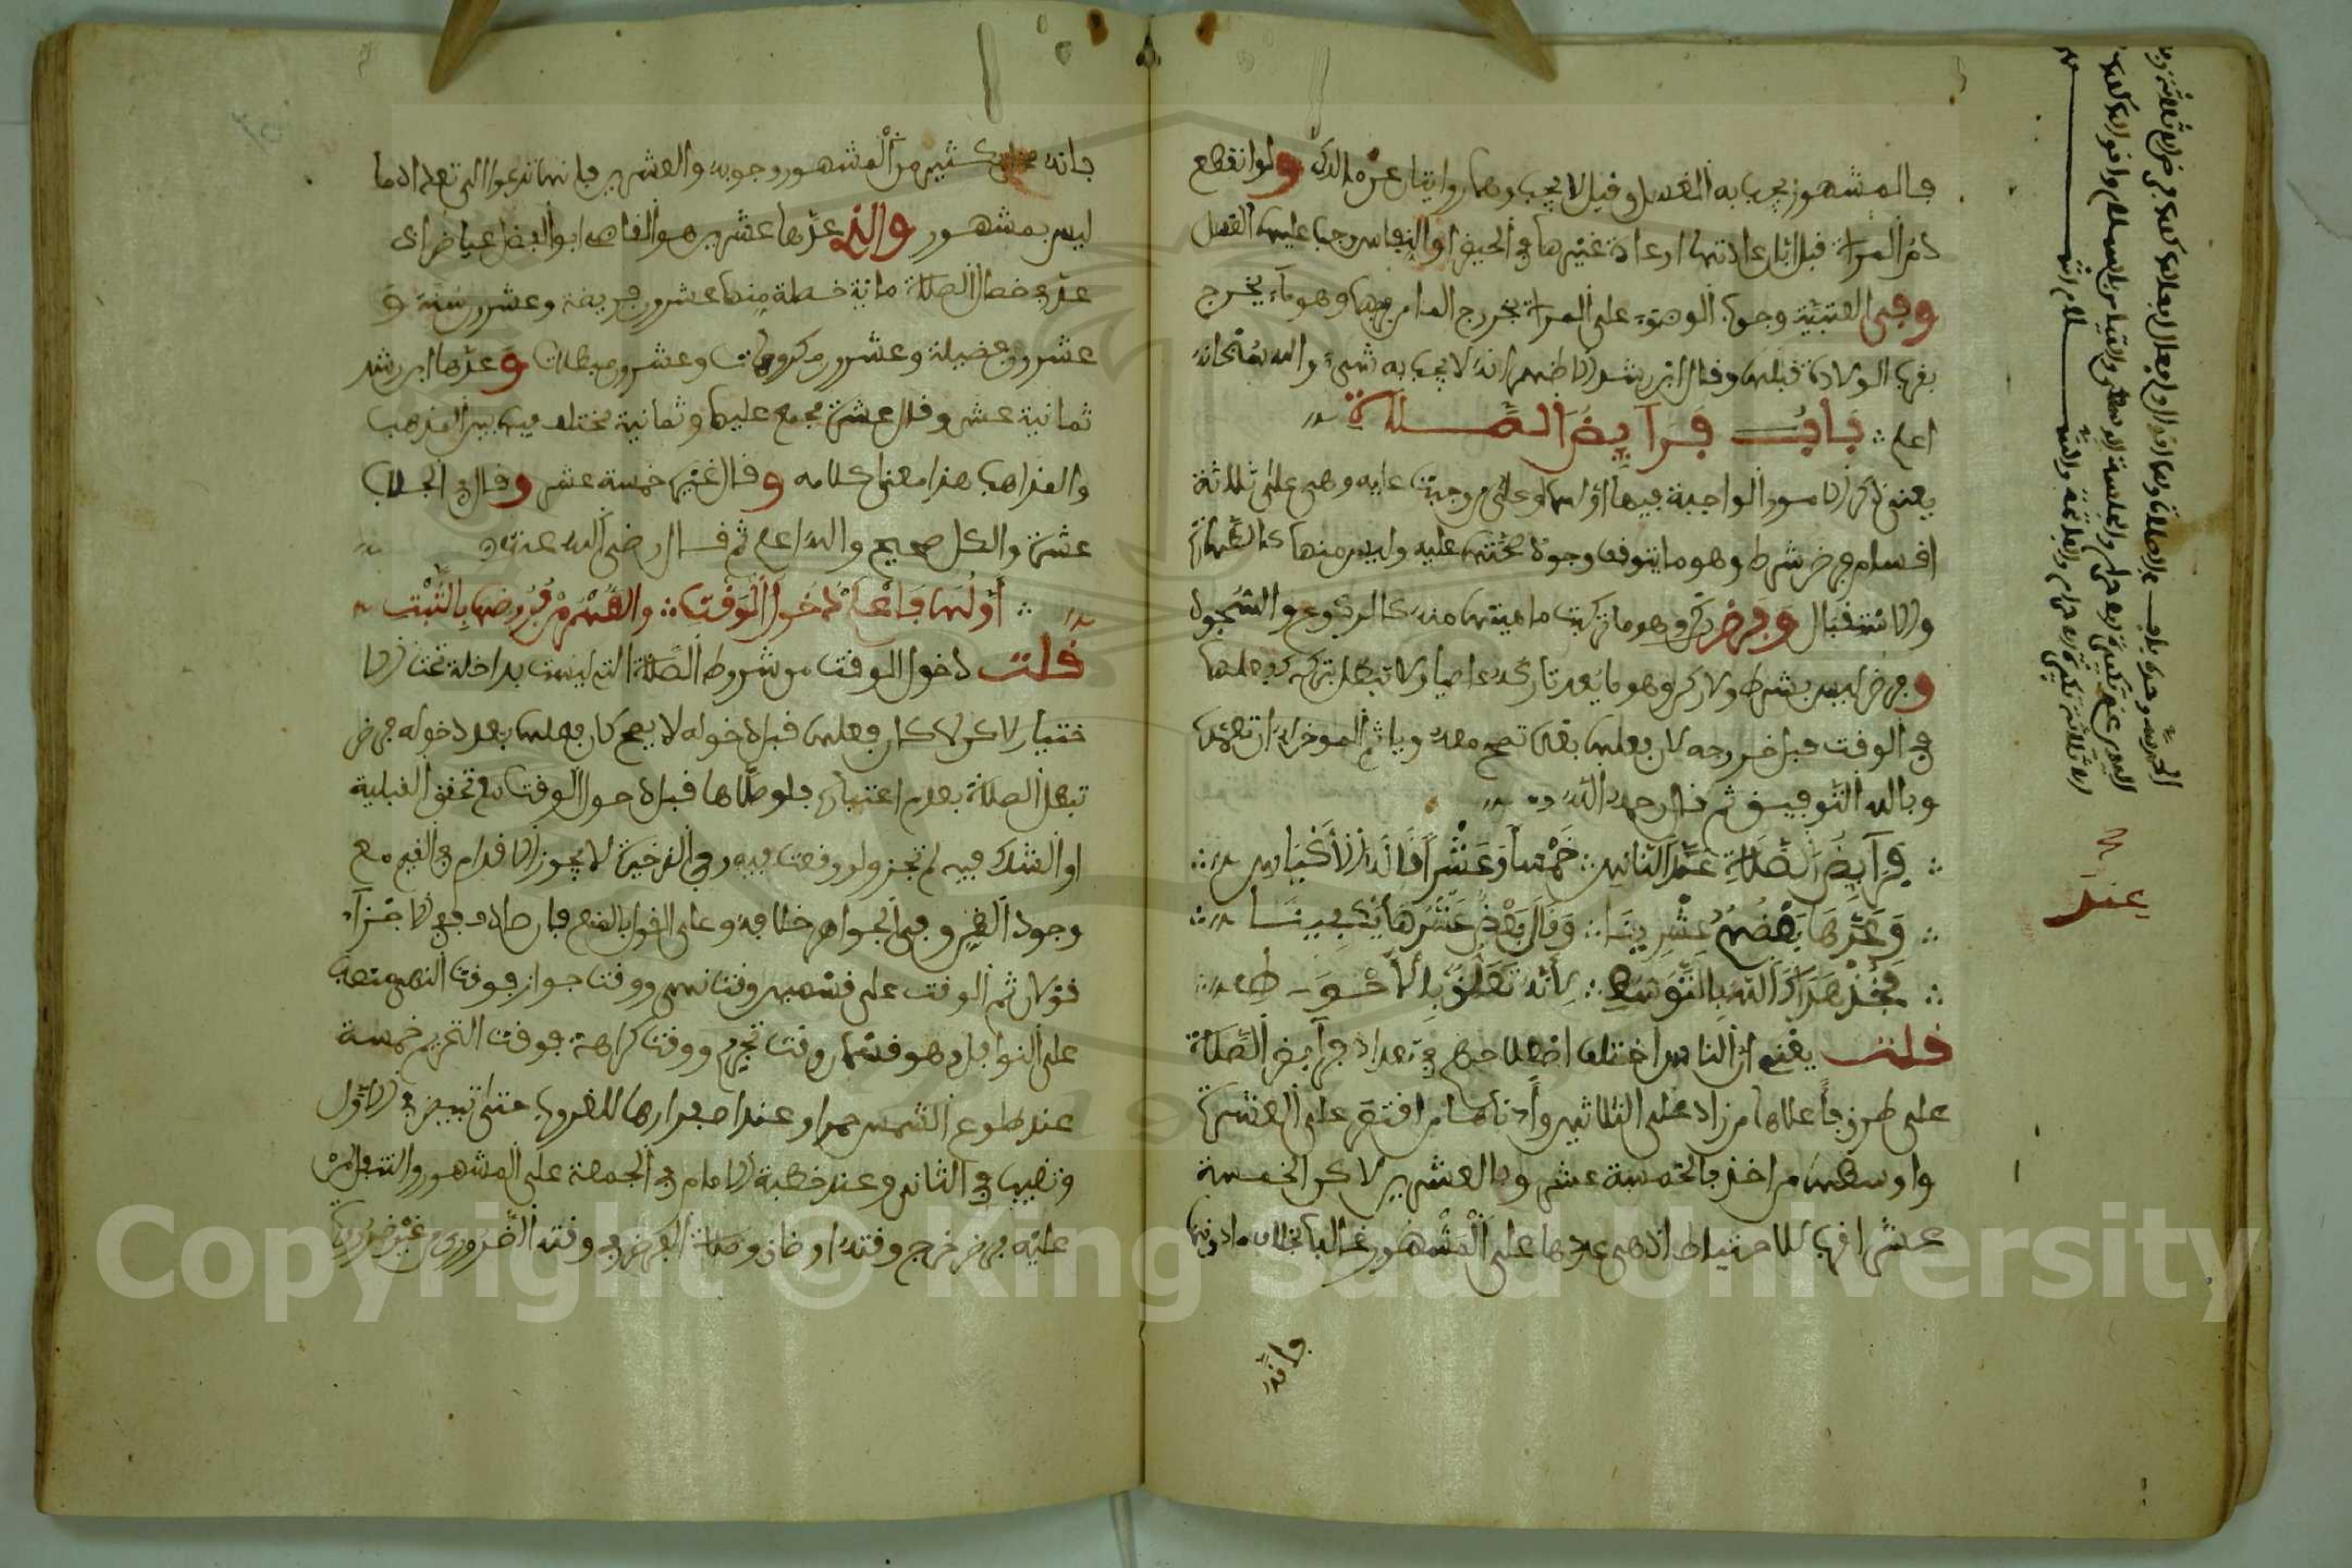 فالمشهور يجب به الغسل وقيل لا يجب وهما روايتان عن مالك ولو انقطع
دم المراة قبل ابان عادتها او عادة غيرها في الحيض او النفاس وجب عليها الغسل
وفي العتبية وجوب الوضوء على المراة بخروج الماء من فرجها وهو ماء يخرج
بقرب الولادة قبلها وقال ابن رشد الاظهر انه لا يجب به شيء والله سبحانه
اعلم باب فرايض الصلاة
يعني ذكر الامور الواجبة فيها اولها وعلى من وجبت عليه وهي على ثلاثة
اقسام فرض شرط وهو ما يتوقف وجود صحتها عليه وليس منها كالطهارة
والاستقبال وفرض ركن وهو ما تركبت ماهيتها منه كالركوع والسجود
وفرض ليس بشرط ولا ركن وهو ما يعد تاركه عاصيا ولا تبطل بتركه كفعلها
في الوقت قبل خروجه لان فعلها بعده تصح معه وياثم المؤخر له ان تعمد
وبالله التوفيق ثم قال رحمه الله
فرايض الصلاة عند الناس خمسا وعشرا قالها الاكياس
وعدها بعضهم عشرينا وقال بعض عشرها يكفينا
فخذ هداك الله بالتوسط لانه تعلق بالاحوط
قلت يعني ان الناس اختلف اصطلاحهم في تعداد فرايض الصلاة
على طرق فاعلاها من زاد على الثلاثين وادناها من اقتصر على العشرة
واوسطها من اخذ بالخمسة عشر وبالعشرين لاكن الخمسة
عشر اقرب للاحتياط اذ هي عدها على المشهور غالبا بخلاف ما دونها
فانه
فانه كثير من المشهور وجوبه والعشرين فانها تدعوا الى تعداد ما
ليس بمشهور والذي عدها عشرين هو القاضي ابو الفضل عياض اذ
عد في خصال الصلاة ماية خصلة منها عشرون فريضة وعشرون سنة و
عشرون فضيلة وعشرون مكروهات وعشرون مبطلات وعدها ابن رشد
ثمانية عشر وقال عشرة مجمع عليها وثمانية مختلف فيها بين المذهب
والمذاهب هذا معنى كلامه وقال غيره خمسة عشر وقال في الجلاب
عشرة والكل صحيح والله اعلم ثم قال رضي الله عنه
اولها فاعلم دخول الوقت والقسم مفروض بالثبت
قلت دخول الوقت من شروط الصلاة التي ليست بداخلة تحت الا
ختيار لاكن لما كان فعلها قبل دخوله لا يصح كان فعلها بعد دخوله فرض
تبطل الصلاة بعدم اعتباره فلو صلاها قبل دخول الوقت مع تحقق القبلية
او الشك فيه لم تجز ولو وقعت فيه وفي الذخيرة لا يجوز الاقدام في الغيم مع
وجود الظن وفي الجواهر خلافه وعلى القول بالمنع فان صادف ففي الاجزاء
قولان ثم الوقت على قسمين وقت نهي ووقت جواز فوقت النهي متعلق
على النوافل وهو قسمان وقت تحريم ووقت كراهة فوقت التحريم خمسة
عند طلوع الشمس حمرا وعند اصفرارها للغروب حتى تبيض في الاول
وتغيب في الثاني وعند خطبة الامام في الجمعة على المشهور والتنفل لمن
عليه فرض خرج وقته او ضاق وصلاة الفرض في وقته الضروري من غير ضرورة